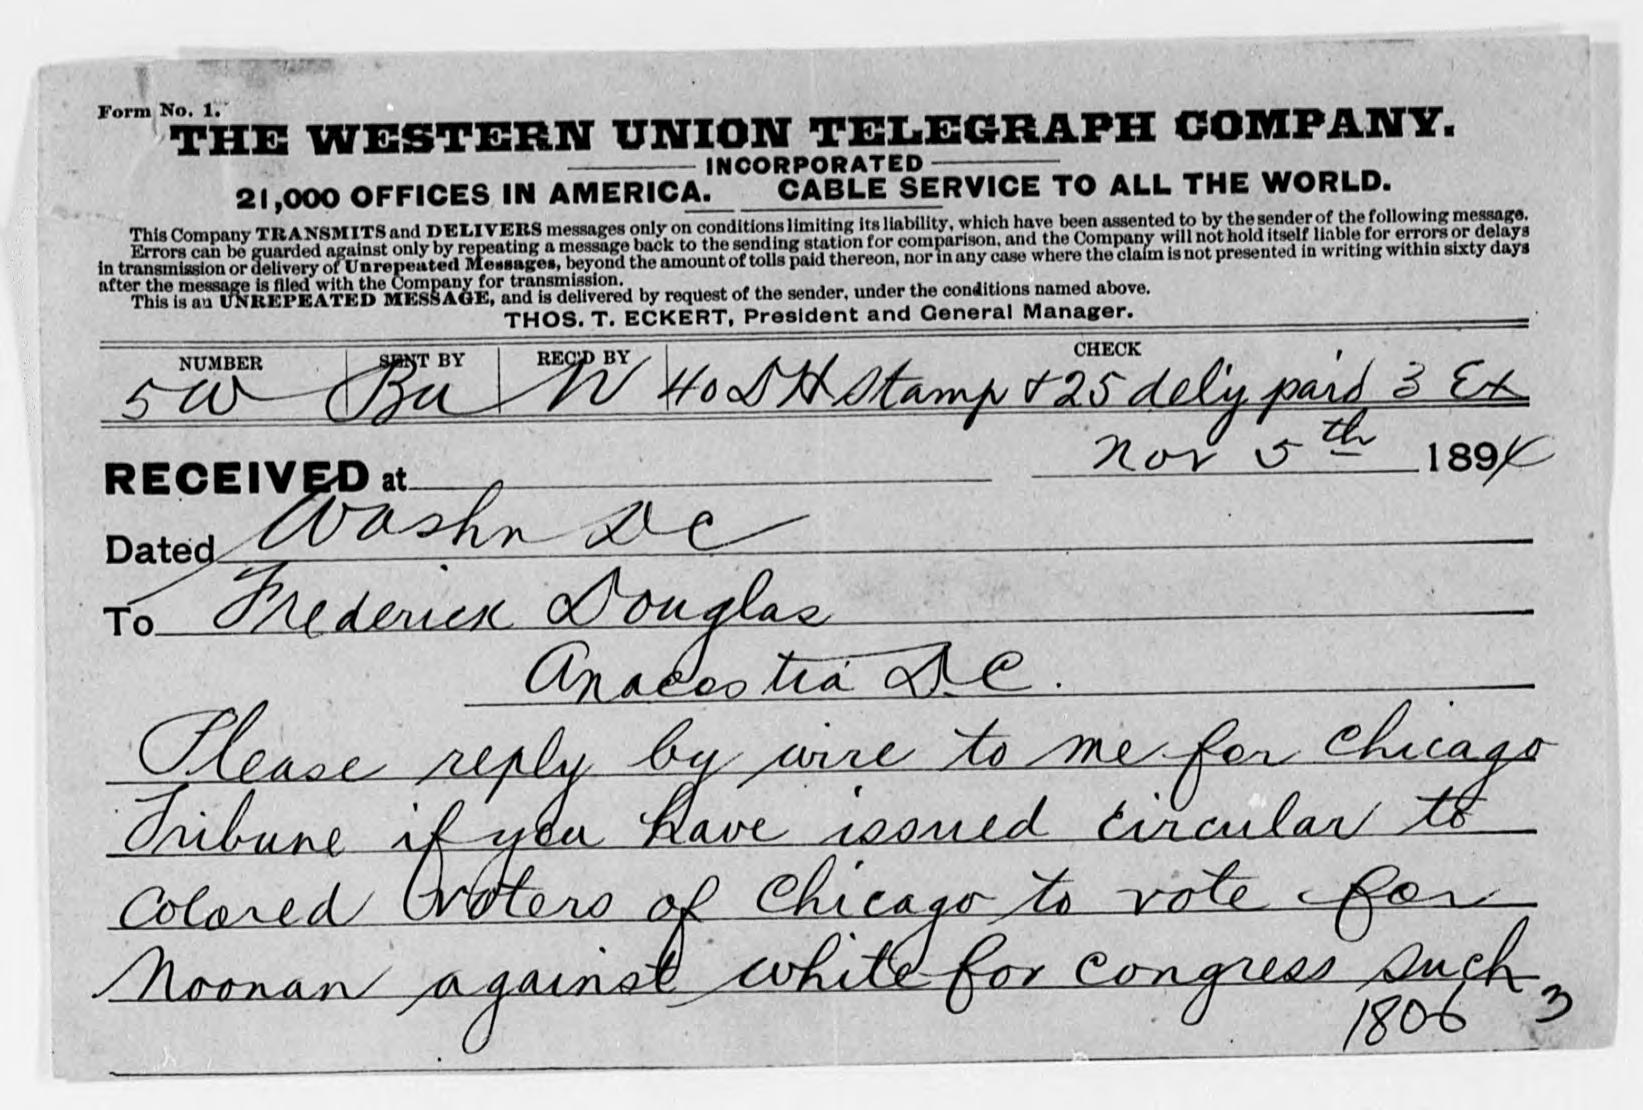 Form No. 1.
THE WESTERN UNION TELEGRAPH COMPANY.
INCORPORATED
21,000 OFFICES IN AMERICA. CABLE SERVICE TO ALL THE WORLD.
This Company TRANSMITS and DELIVERS messages only on conditions limiting its liability, which have been assented to by the sender of the following message.
Errors can be guarded against only by repeating a message back to the sending station for comparison, and the Company will not hold itself liable for errors or delays
in transmission or delivery of Unrepeated Messages, beyond the amount of tolls paid thereon, nor in any case where the claim is not presented in writing within sixty days
after the message is filed with the Company for transmission.
This is an UNREPEATED MESSAGE, and is delivered by request of the sender, under the conditions named above.
THOS. T. ECKERT, President and General Manager.
NUMBER SENT BY REC'D BY CHECK
5W Bu N 40 DH Stamp + 25 del'y paid 3 Ex
RECEIVED at Nov 5th 1894
Dated Washn DC
To Frederick Douglas
Anacostia D.C.
Please reply by wire to me for Chicago
Tribune if you have issued circular to
Colored voters of Chicago to vote for
Noonan against white for congress such
1806 3